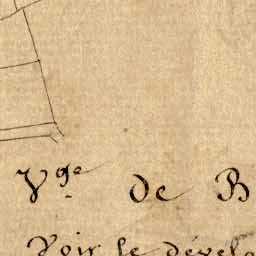 Vge De B
Voir le dévelo